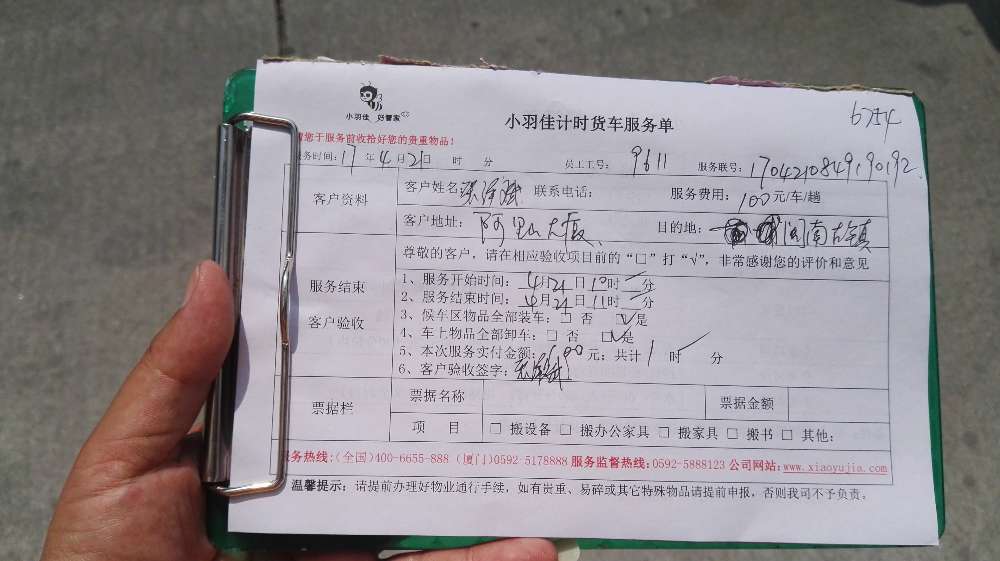 小羽佳 好管家
小羽佳计时货车服务单
6754
请您于服务前收拾好您的贵重物品!
服务时间:17年4月21日 时 分 员工工号: 9611 服务联号:1704210849190192
客户资料
客户姓名: 联系电话: 服务费用:100元/车/趟
客户地址:阿里山大厦、 目的地: 闽南古镇
服务结束
客户验收
尊敬的客户,请在相应验收项目前的“□”打“√”,非常感谢您的评价和意见
1、服务开始时间:4月21日10时 分
2、服务结束时间:4月21日11时 分
3、候车区物品全部装车:□ 否 □√是
4、车上物品全部卸车:□ 否 □√是
5、本次服务实付金额:100元;共计1时 分
6、客户验收签字:
票据栏
票据名称 票据金额
项 目 □ 搬设备 □ 搬办公家具 □ 搬家具 □ 搬书 □ 其他:
服务热线:(全国)400-6655-888 (厦门)0592-5178888 服务监督热线:0592-5888123 公司网站:www.xiaoyujia.com
温馨提示:请提前办理好物业通行手续,如有贵重、易碎或其它特殊物品请提前申报,否则我司不予负责。